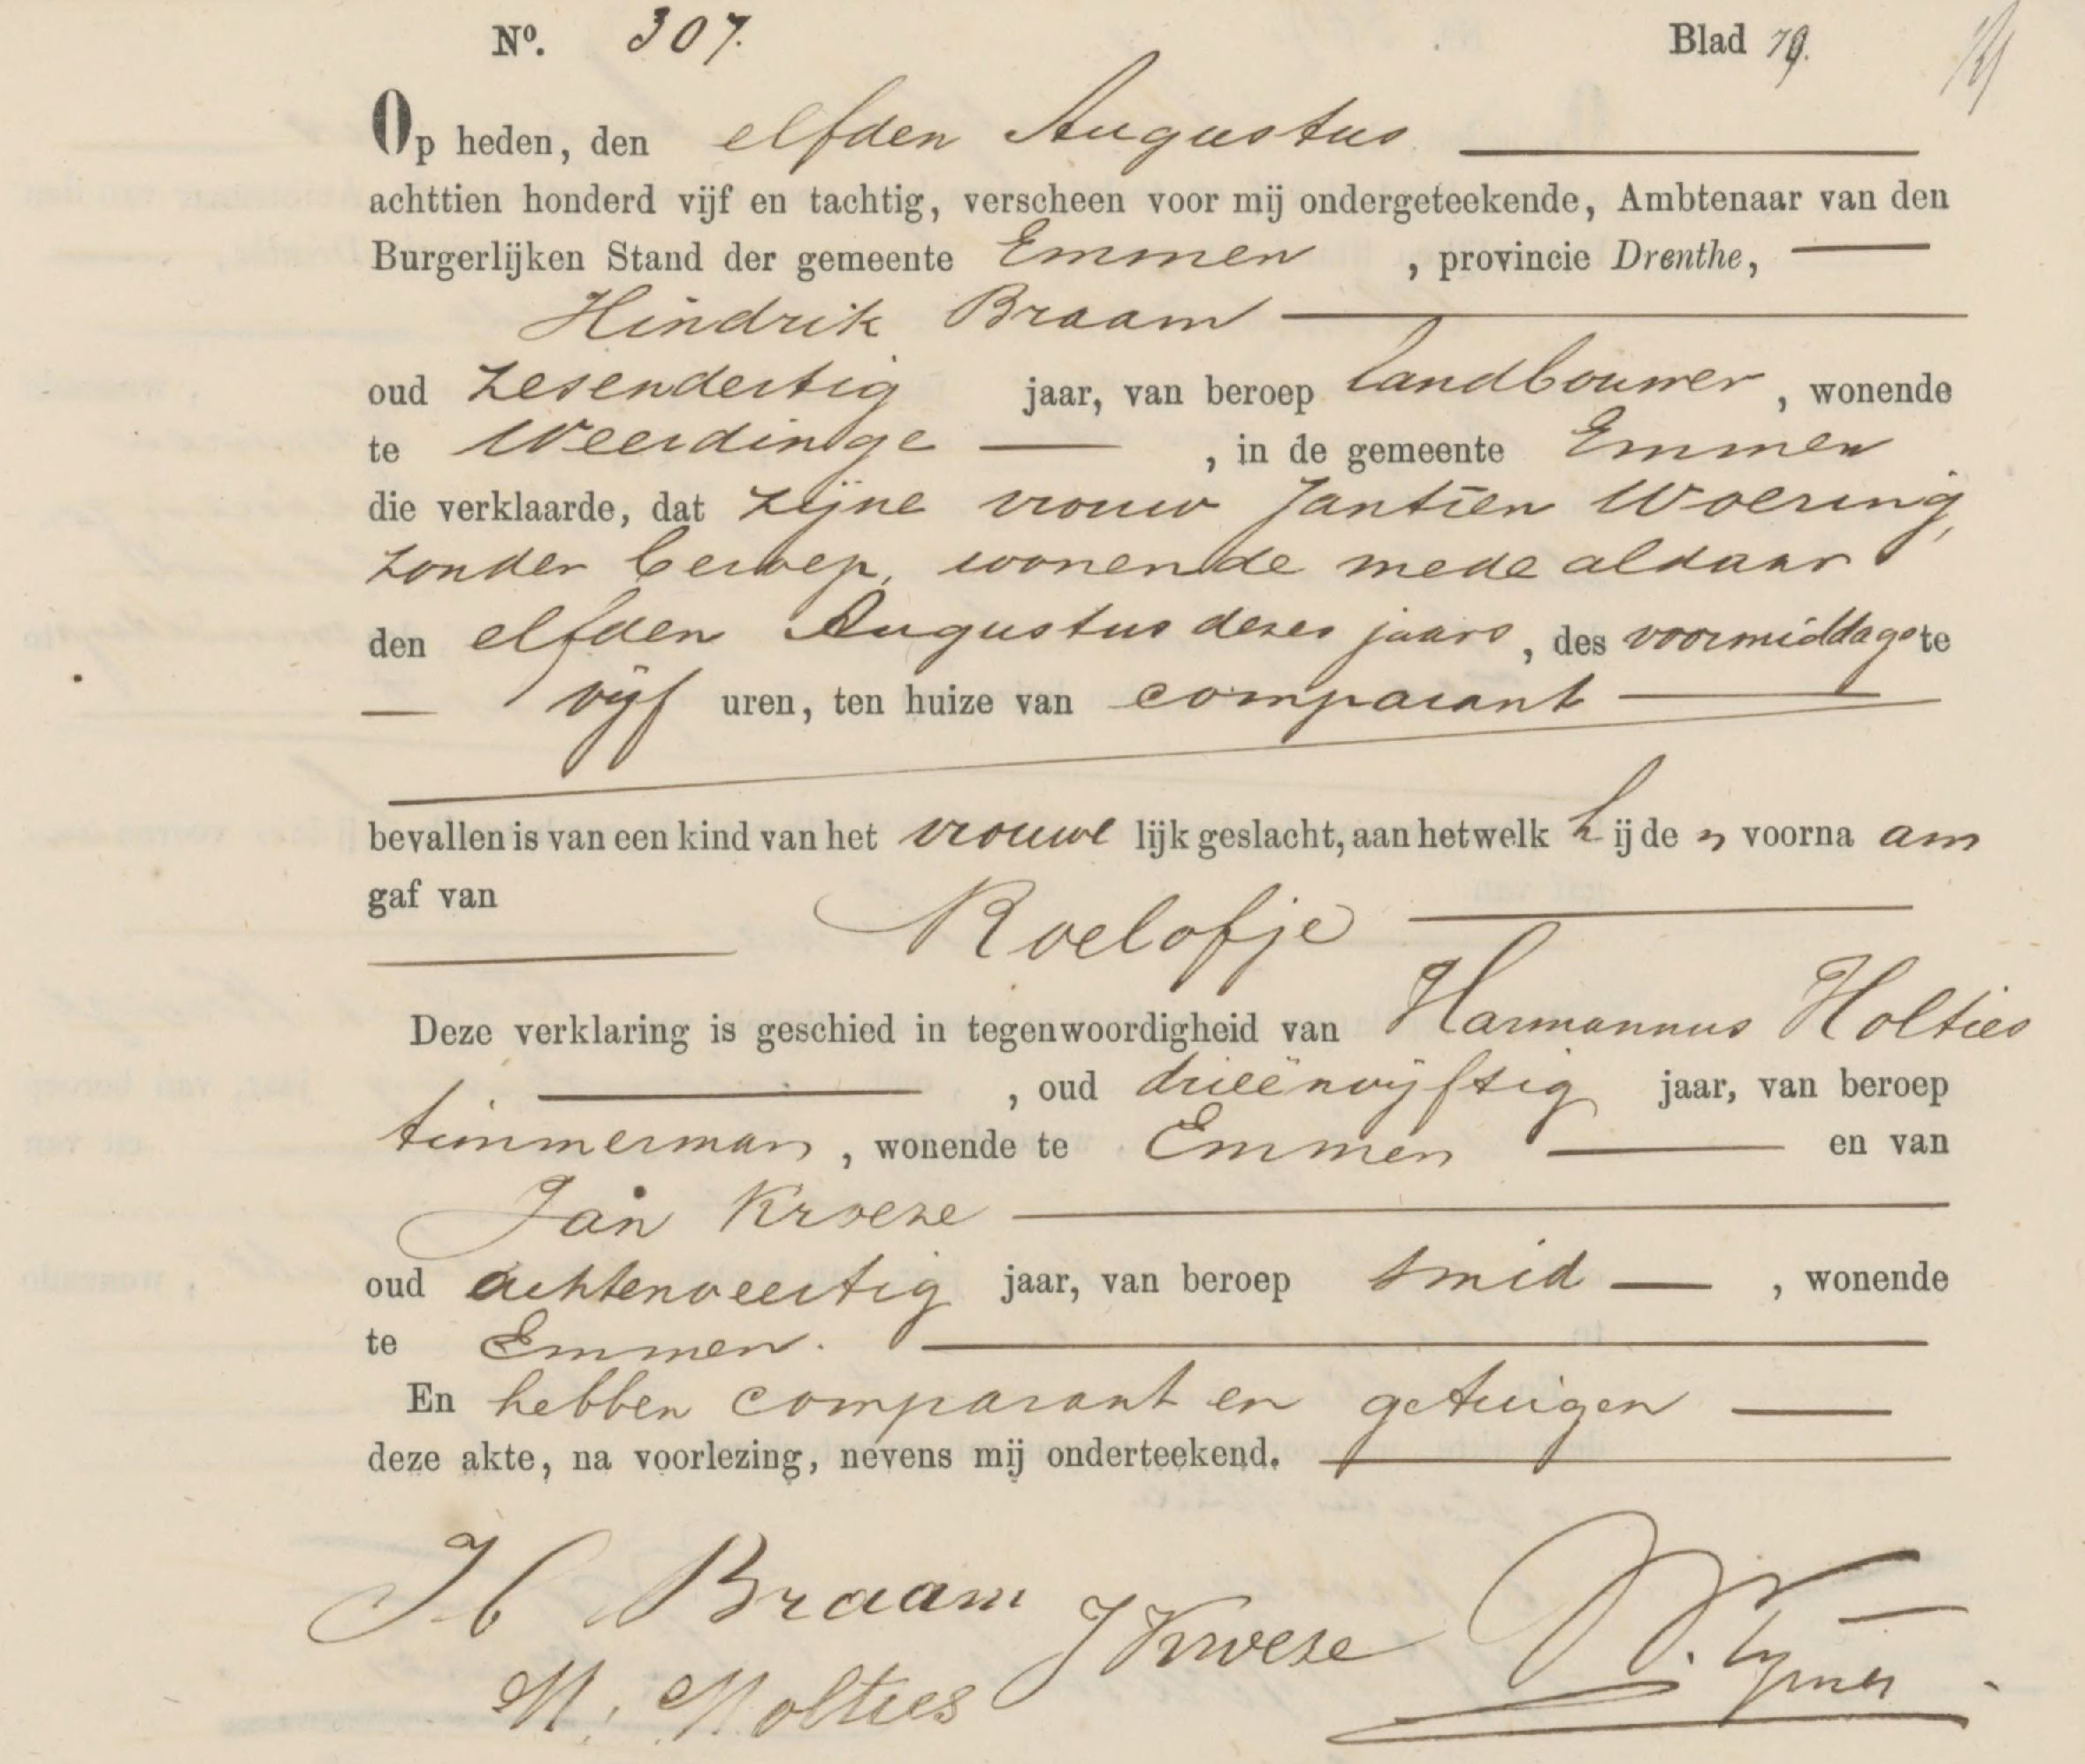 No. 307. Blad 79.
Op heden, den elfden Augustus
achttien honderd vijf en tachtig, verscheen voor mij ondergeteekende, Ambtenaar van den
Burgerlijken Stand der gemeente Emmen, provincie Drenthe,
Hindrik Braam
oud zesendertig jaar, van beroep landbouwer, wonende
te Weerdinge, in de gemeente Emmen
die verklaarde, dat zijne vrouw Jantien Woering,
zonder beroep, wonende mede aldaar
den elfden Augustus dezes jaars, des voormiddags te
vijf uren, ten huize van comparant
bevallen is van een kind van het vrouwelijk geslacht, aan hetwelk hij den voornaam
gaf van
Roelofje
Deze verklaring is geschied in tegenwoordigheid van Harmannus Holties
, oud drieënvijftig jaar, van beroep
timmerman, wonende te Emmen en van
Jan Kroeze
oud achtenveertig jaar, van beroep smid, wonende
te Emmen.
En hebben comparant en getuigen
deze akte, na voorlezing, nevens mij onderteekend.
H Braam
J Kroeze
H. Holties